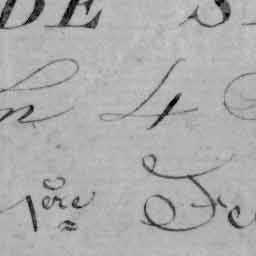 DE S
n 4
1ère Fe